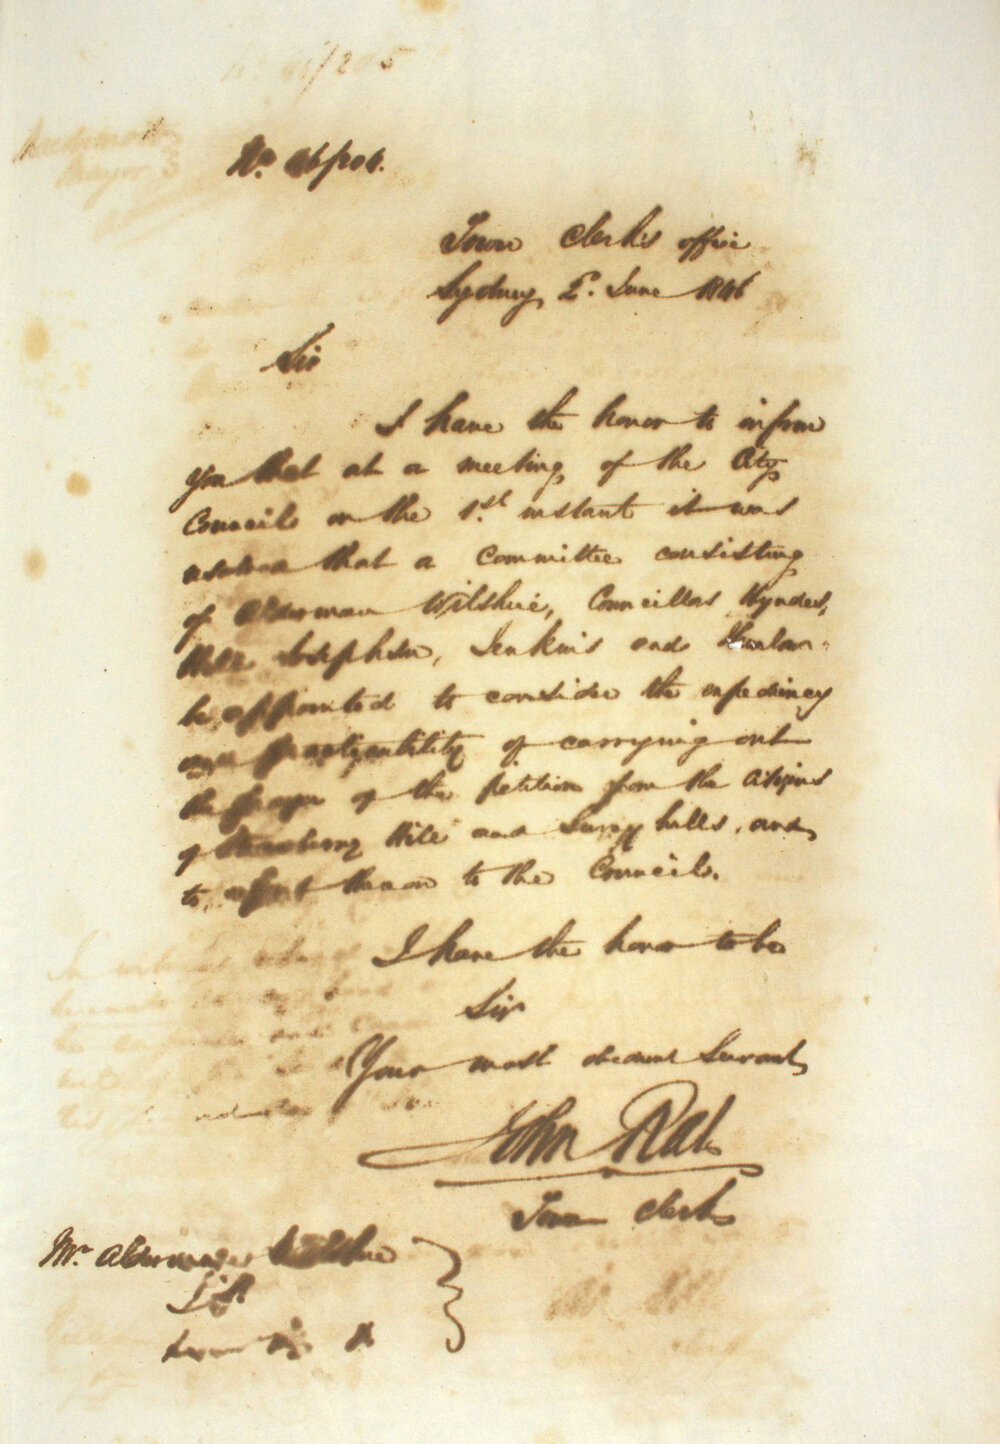 No. 46/204.
Town Clerk's office
Sydney, 2d. June 1846
Sir
I have the honor to inform
you that at a meeting of the City
Council on the 1.st instant it was
resolved that a Committee consisting
of Alderman Wilshire, Councillors Hyndes,
Hill Josephson, Jenkins and
be appointed to consider the expediency
and practicability of carrying out
the prayer of the petition from the Citizens
of Strawberry Hill and Surry hills, and
to report thereon to the Council.
I have the honor to be
Sir
Your most obedient Servant
John Rae
Town Clerk
Mr. Alderman Wilshire